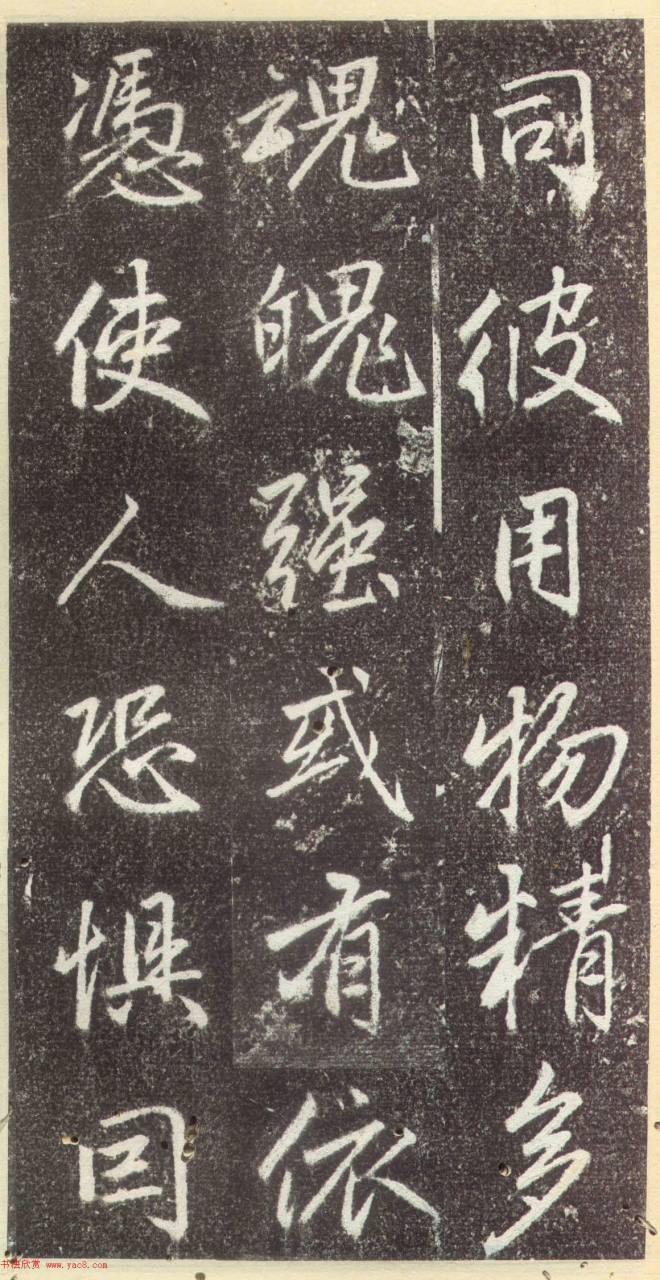 同彼用物精多
魂魄强或有依
憑使人恐惧囙
书法欣赏 www.yac8.com